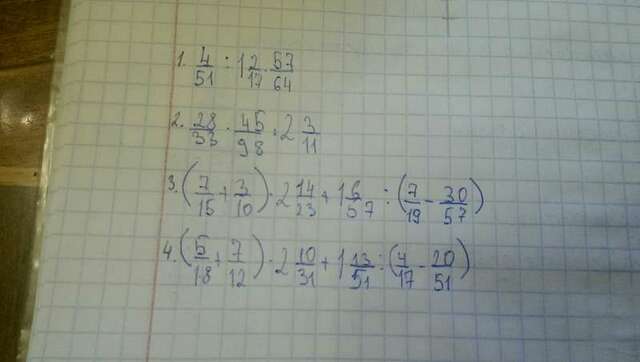 1. 4/51 : 1 2/17 · 57/64
2. 28/33 · 45/98 · 2 3/11
3. (7/15 + 3/10) · 2 14/23 + 1 6/57 : (7/19 - 30/57)
4. (5/18 + 7/12) · 2 10/31 + 1 13/51 : (4/17 - 20/51)